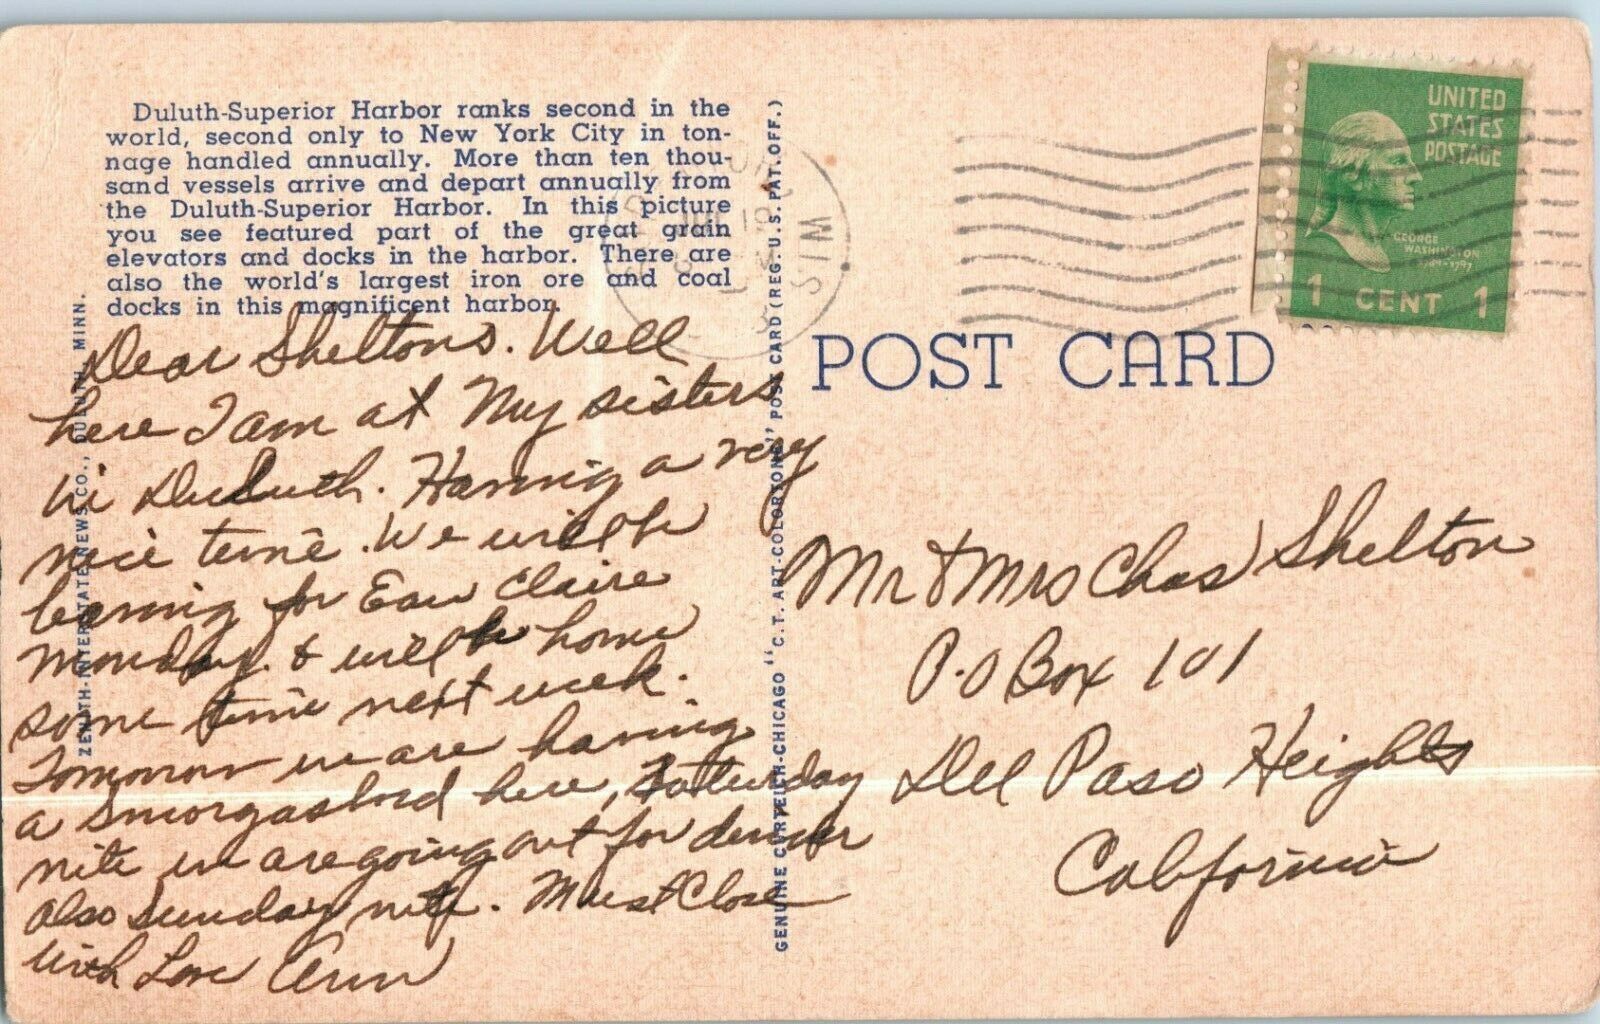 Duluth-Superior Harbor ranks second in the
world, second only to New York City in ton-
nage handled annually. More than ten thou-
sand vessels arrive and depart annually from
the Duluth-Superior Harbor. In this picture
you see featured part of the great grain
elevators and docks in the harbor. There are
also the world's largest iron ore and coal
docks in this magnificent harbor.
Dear Sheltons. Well
here I am at My sisters
in Duluth. Having a very
nice time. We will be
leaving for Eau Claire
Monday. & will be home
some time next week.
Tomorrow we are having
a Smorgasbord here, Saturday
nite we are going out for dinner
also Sunday nite. Must Close
With Love Ann
ZENITH-INTERSTATE NEWS CO., DULUTH, MINN.
GENUINE CURTEICH-CHICAGO "C.T. ART-COLORTONE" POST CARD (REG. U.S. PAT. OFF.)
POST CARD
UNITED
STATES
POSTAGE
GEORGE
WASHINGTON
1789-1797
1 CENT 1
JUL 19
MIS
Mr & Mrs Chas Shelton
P.O Box 101
Del Paso Heights
California